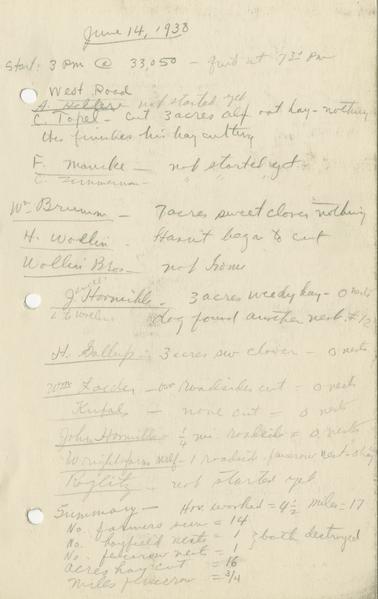 June 14, 1938
Start: 3 Pm @ 33,050 - quit at 7 Pm
West Road
not started yet
C. Topel - cut 3 acres alf oat hay - nothing
His finishes his hay cutting
F. Mancke - not started yet
C. Zimmerman - " " "
Wm Brumm - 7 acres sweet clover nothing
H. Wodlin - Hasn't began to cut
Wollin Bros - not home
J. Hornickle - 3 acres weedy hay - 0 nests
dog found another nest #
H. Gallup - 3 acres sw clover - 0 nests
Wm - our Roadsides cut = 0 nests
- none cut = 0 nests
John Hornickle 1/4 mi. roadside = 0 nests
1 Roadsd. fencerow nest
- not started yet
Summary - Hov. worked = 4 1/2 miles = 17
No. farmers seen = 14
No. hayfield nests = 1 } both destroyed
No. fencerow nest = 1
Acres hay cut = 16
Miles fencerow = 3/4